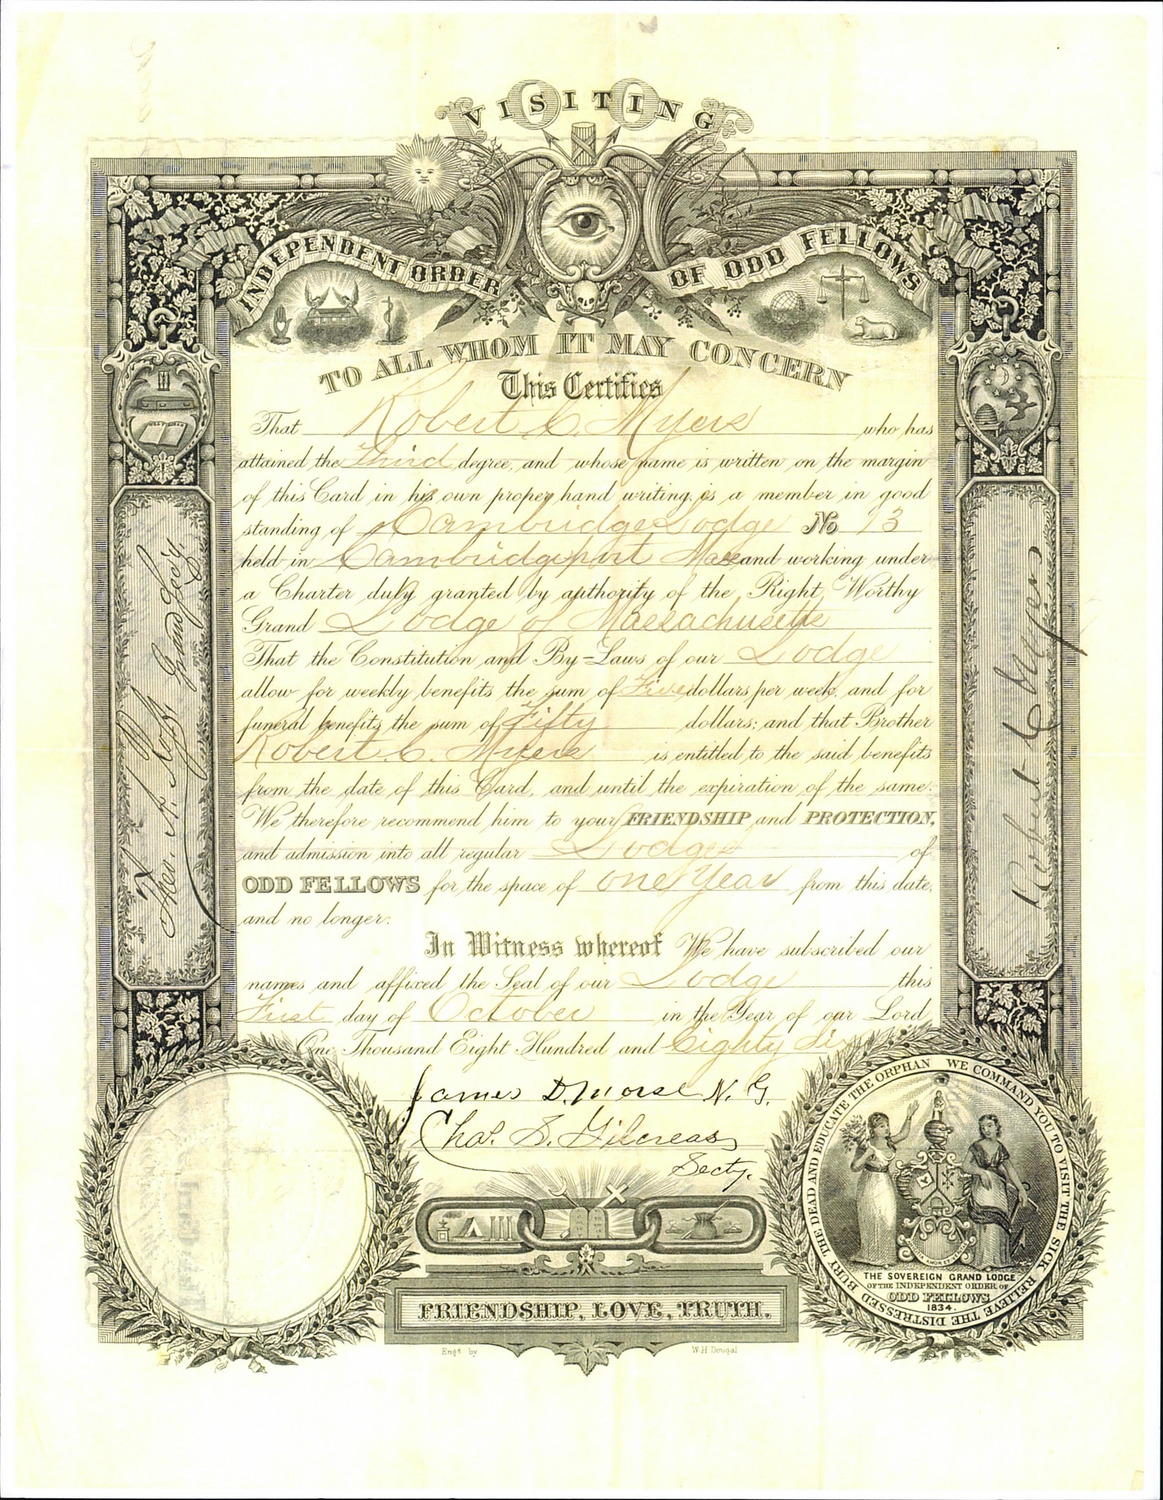 VISITING
INDEPENDENT ORDER OF ODD FELLOWS
TO ALL WHOM IT MAY CONCERN
This Certifies
That Robert C. Myers who has
attained the Third degree, and whose name is written on the margin
of this Card in his own proper hand writing, is a member in good
standing of Cambridge Lodge No 13
held in Cambridgeport Mass and working under
a Charter duly granted by authority of the Right Worthy
Grand Lodge of Massachusetts
That the Constitution and By=Laws of our Lodge
allow for weekly benefits the sum of Five dollars per week, and for
funeral benefits the sum of Fifty dollars; and that Brother
Robert C. Myers is entitled to the said benefits
from the date of this Card, and until the expiration of the same.
We therefore recommend him to your FRIENDSHIP and PROTECTION,
and admission into all regular Lodges of
ODD FELLOWS for the space of one Year from this date,
and no longer.
In Witness whereof We have subscribed our
names and affixed the Seal of our Lodge this
First day of October in the Year of our Lord
One Thousand Eight Hundred and Eighty Six
James D. Morse N. G.
Chas. S. Gilcreas
Secty.
Grand Secy.
Robert C Myers
FRIENDSHIP, LOVE, TRUTH.
Engd. by W. H. Dougal
WE COMMAND YOU TO VISIT THE SICK RELIEVE THE DISTRESSED BURY THE DEAD AND EDUCATE THE ORPHAN
THE SOVEREIGN GRAND LODGE
OF THE INDEPENDENT ORDER OF
ODD FELLOWS
1834.